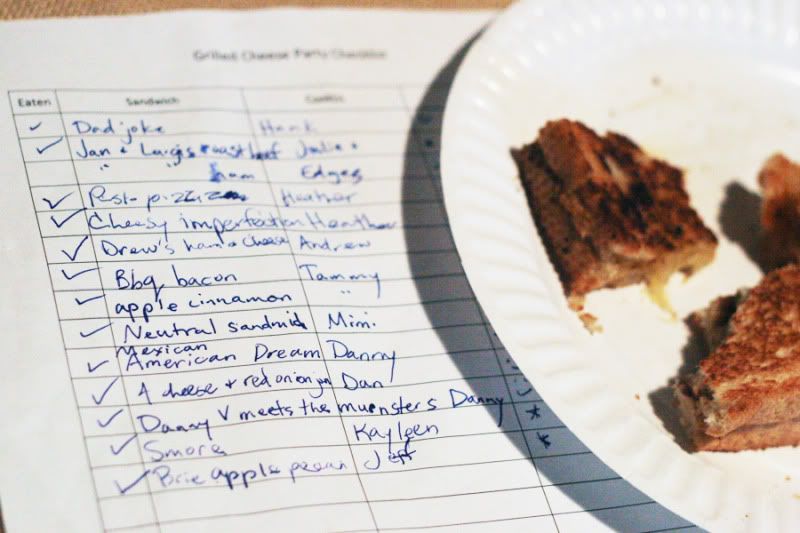 Grilled Cheese Party Checklist
Eaten Sandwich Cook(s)
Dad joke Hank
Jan + Luigi's roast beef Julie +
" " ham Edges
Pesto pizza Heather
Cheesy imperfection Heather
Drew's ham + cheese Andrew
Bbq bacon Tammy
apple cinnamon "
Neutral sandwich Mimi
Mexican
American Dream Danny
4 cheese + red onion jam Dan
Danny V meets the muensters Danny
Smore Kayleen
Brie apple pecan Jeff